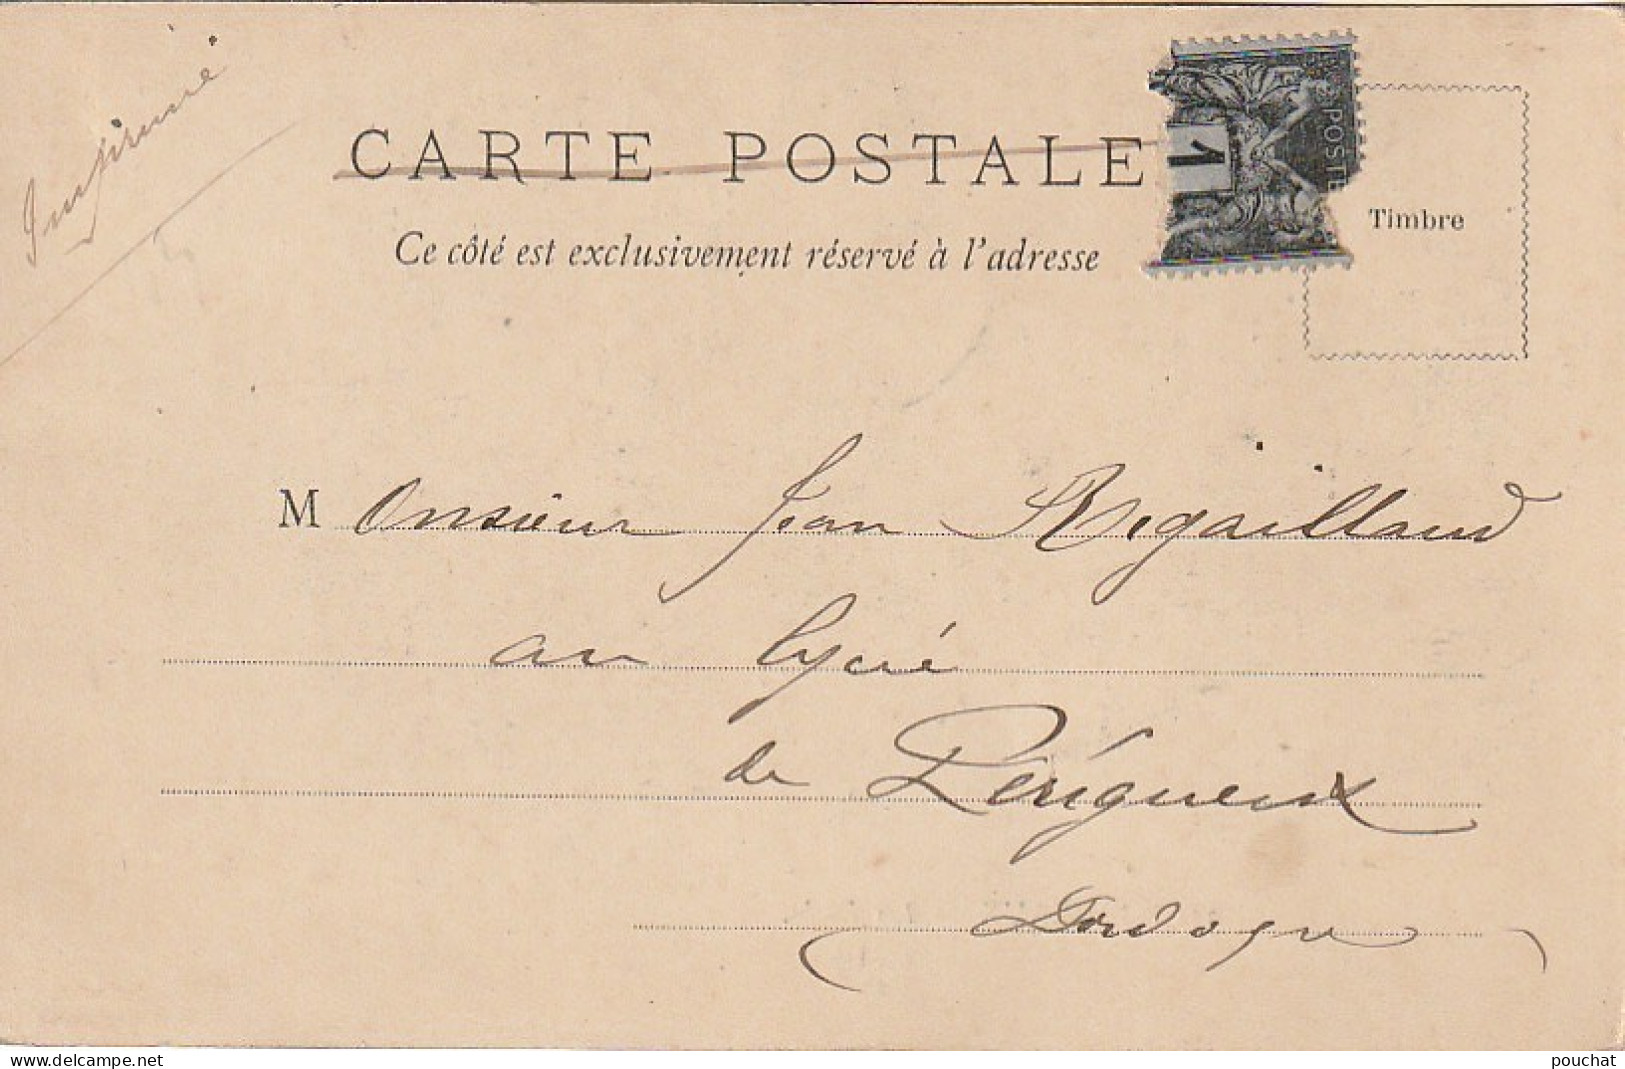 Imprimé
CARTE POSTALE
Ce côté est exclusivement réservé à l'adresse
POSTE
1
Timbre
M Onsieur Jean Régaillaud
au lycée
de Périgueux
(Dordogne)
www.delcampe.net
pouchat